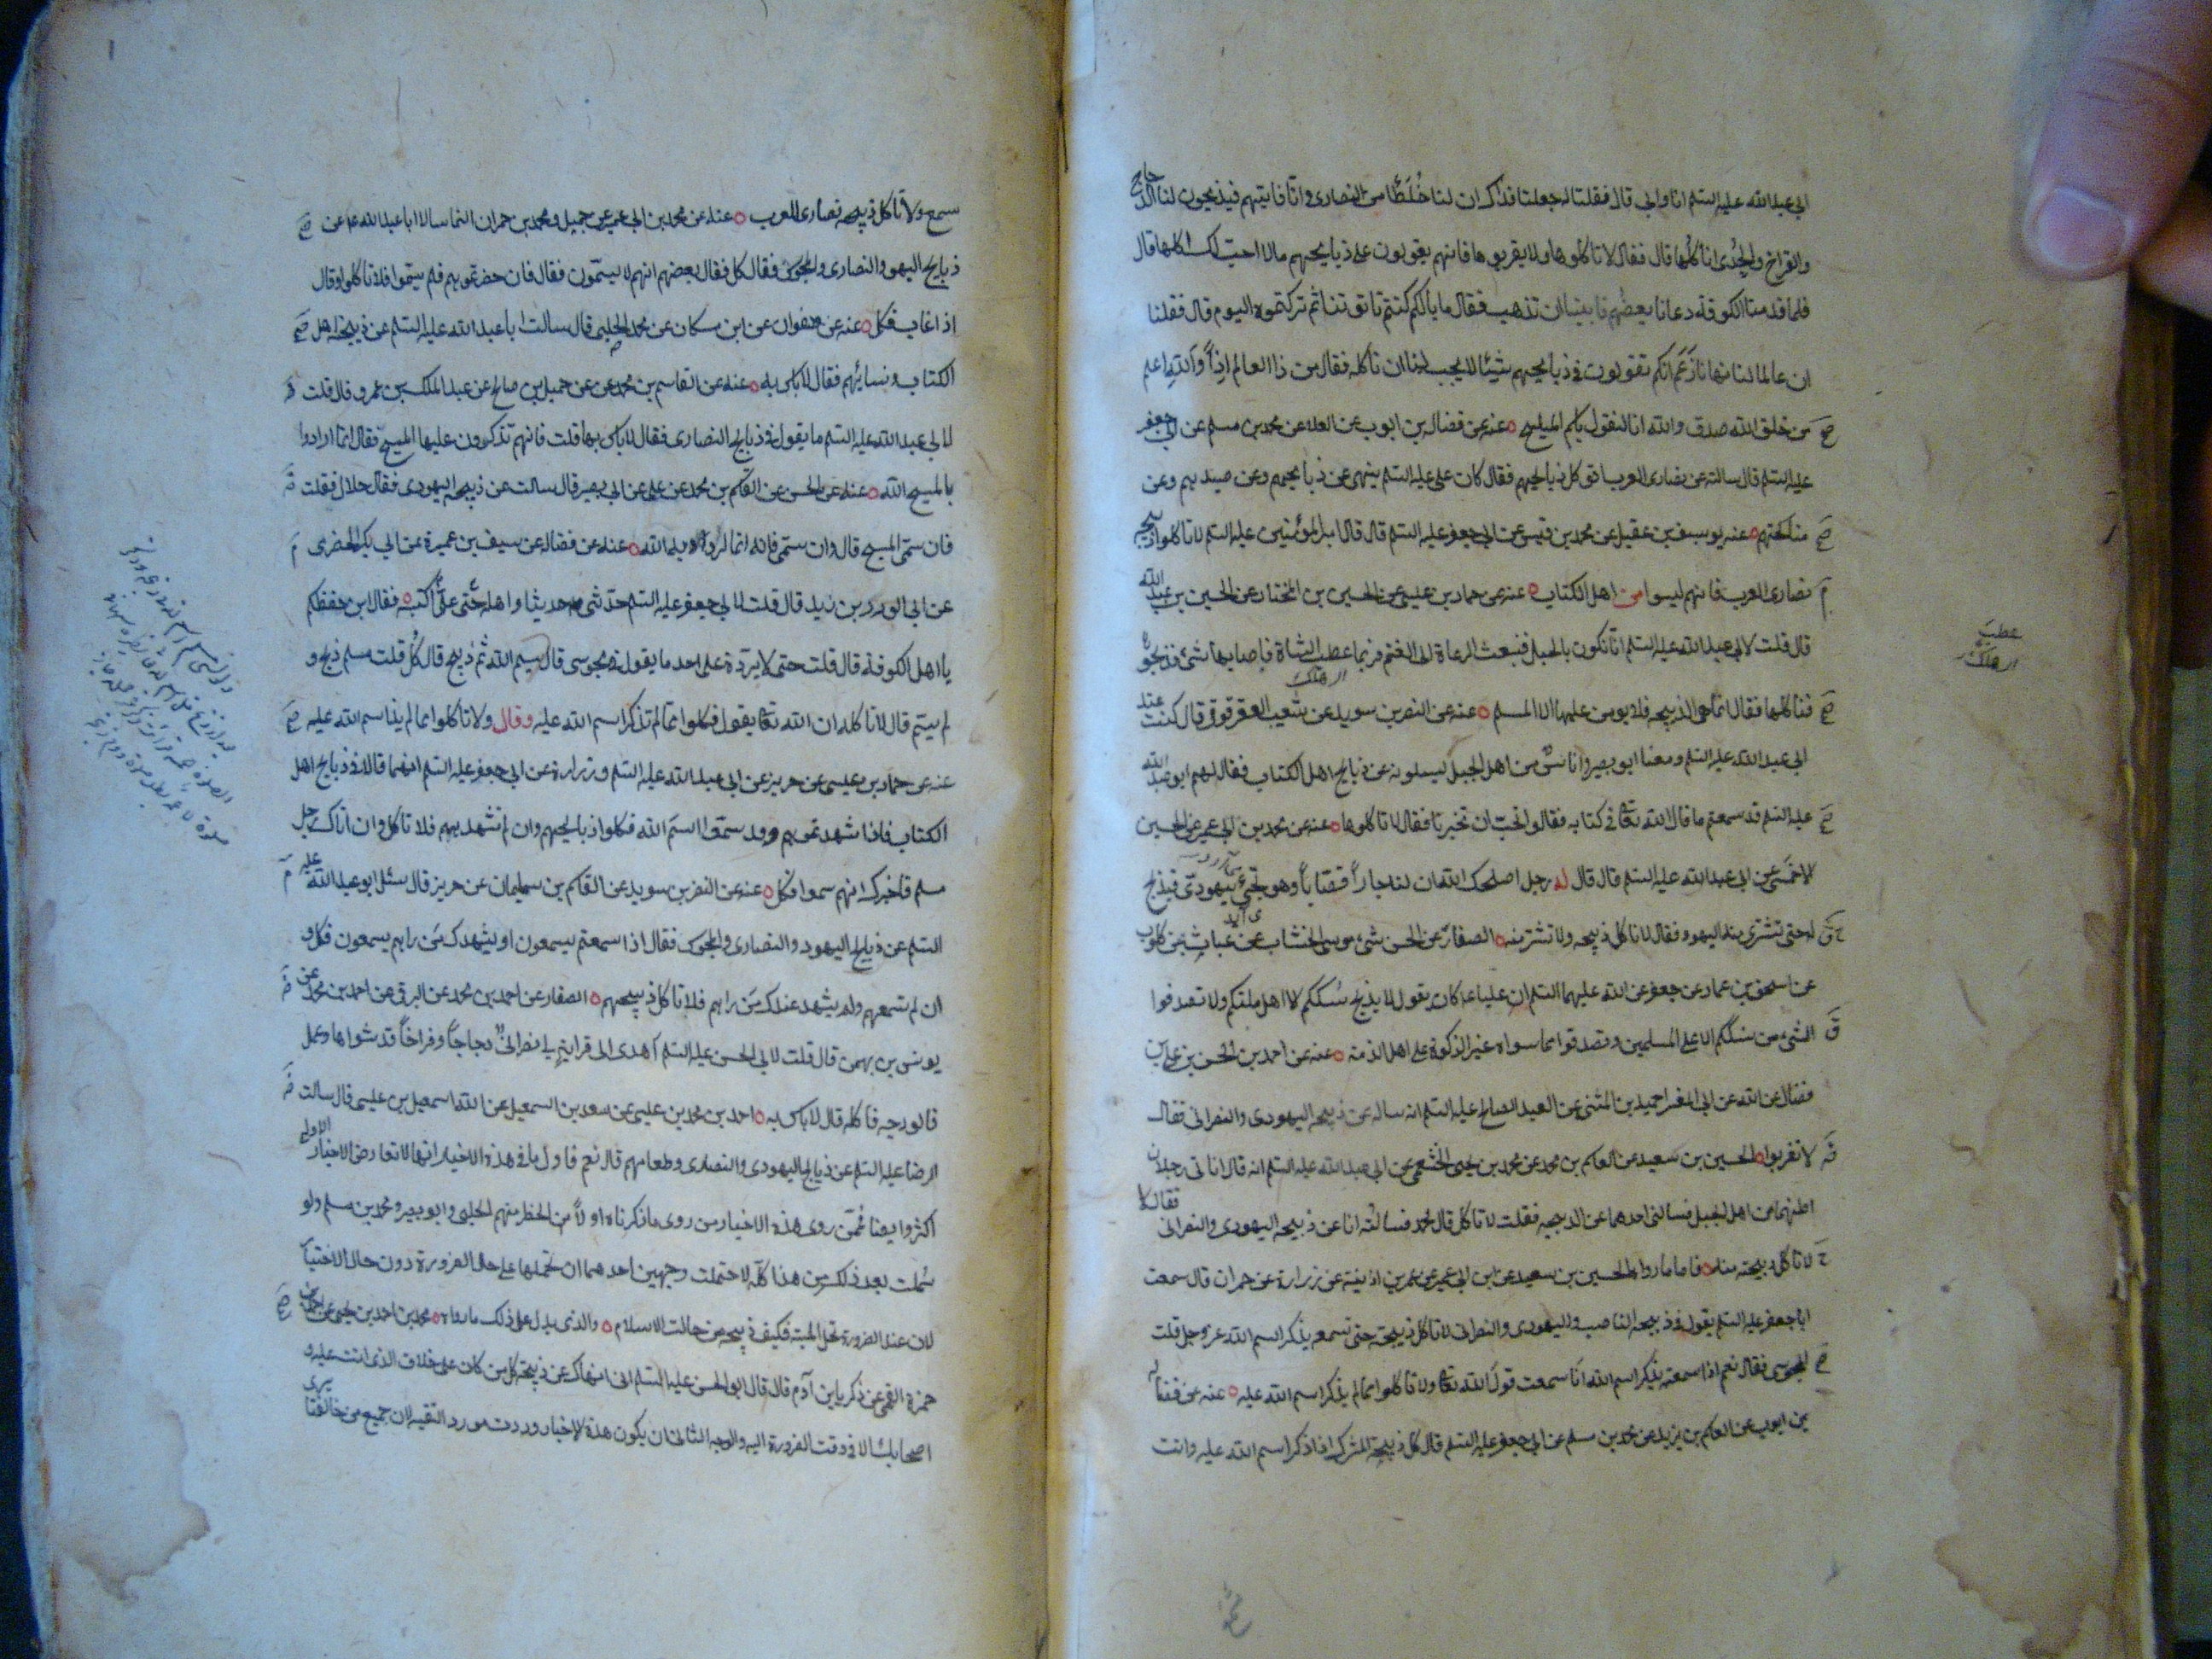 ابي عبد الله عليه السلم انا وابي قال فقلنا له جعلنا فداك ان لنا خُلَطَاء من النصارى وانا ناتيهم فيذبحون لنا الدجاج
والفراخ والجِدَى اناكلها قال فقال لا تاكلوها ولا تقربوها فانهم يقولون على ذبايحهم ما لا احب لك اكلها قال
فلما قدمنا الكوفة دعانا بعضهم فابينا ان نذهب فقال ما بالكم كنتم تاتوننا ثم تركتموه اليوم قال فقلنا
ان عالما لنا نهانا زَعَمَ انكم تقولون في ذبايحهم شيئا لا يحب لنا ان ناكله فقال من ذا العالم اذاً والله اعلم
من خلق الله صدق والله انا لنقول باسم المسيح ه عنه عن فضالة بن ايوب عن العلا عن محمد بن مسلم عن ابي جعفر
عليه السلم قال سالته عن نصارى العرب اتوكل ذبايحهم فقال كان علي عليه السلم ينهى عن ذبايحهم وعن صيدهم وعن
مناكحتهم ه عنه يوسف بن عقيل عن محمد بن قيس عن ابي جعفر عليه السلم قال قال امير المؤمنين عليه السلم لا تاكلوا ذبيحة
نصارى العرب فانهم ليسوا من اهل الكتاب ه عنه عن حماد بن عيسى عن الحسين بن المختار عن الحسين بن عبد الله
قال قلت لابي عبد الله عليه السلم انا نكون بالجبل فنبعث الرعاة الى الغنم فربما عطب الشاة فاصابها شئ فذبحوه
اي هلك
عطبَ
اي هلك
فناكلها فقال انما هي الذبيحة فلا يومن عليها الا المسلم ه عنه عن النضر بن سويد عن شعيب العقرقوفي قال كنت عند
ابي عبد الله عليه السلم ومعنا ابو بصير واناسٌ من اهل الجبل يسلونه عن ذبايح اهل الكتاب فقال لهم ابو عبد الله
عليه السلم قد سمعتم ما قال الله تعا في كتابه فقالوا نحبّ ان تخبرنا فقال لا تاكلوها ه عنه عن محمد بن ابي عمير عن الحسين
الاحمسَى عن ابي عبد الله عليه السلم قال قال له رجل اصلحك الله ان لنا جاراً قصّاباً وهو يجيء بيهودي فيذبح
له حتى يشتري منه اليهود فقال لا تاكل ذبيحه ولا تشتر منه ه الصفار عن الحسن بن موسى الخشاب عن غياث بن كلوب
عن اسحق بن عمار عن جعفر عن ابيه عليهما السلم ان عليا ع كان يقول لا يذبح نسككم الا اهل ملتكم ولا تصدقوا
بشئ من نسككم الا على المسلمين وتصدقوا مما سواه غير الزكوة على اهل الذمة ه عنه عن احمد بن الحسن بن علي بن
فضال عن ابيه عن ابي المغرا حميد بن المثنى عن العبد الصالح عليه السلم انه ساله عن ذبيحه اليهودي والنصراني فقال
لا تقربوا الحسين بن سعيد عن القسم بن محمد عن محمد بن يحيى الخثعمي عن ابي عبد الله عليه السلم انه قال اتاني رجلان
اظنهما من اهل الجبل فسالني احدهما عن الذبيحه فقلت لا تاكل قال محمد فسالته انا عن ذبيحه اليهودي والنصراني فقال لا
لا تاكل ذبيحته منه ه فاما ما رواه الحسين بن سعيد عن ابن ابي عمير عن عمر بن اذينة عن زرارة عن حمران قال سمعت
ابا جعفر عليه السلم يقول في ذبيحه الناصب واليهودي والنصراني لا تاكل ذبيحته حتى تسمعه يذكر اسم الله عز وجل قلت
المجوسى فقال نعم اذا سمعته يذكر اسم الله اما سمعت قول الله تعا ولا تاكلوا مما لم يذكر اسم الله عليه ه عنه عن فضاله
بن ايوب عن القسم بن بريد عن محمد بن مسلم عن ابي جعفر عليه السلم قال كل ذبيحة المشرك اذا ذكر اسم الله عليه وانت
سمع ولا تاكل ذبيحه نصارى العرب ه عنه عن محمد بن ابي عمير عن جميل ومحمد بن حمران انهما سالا ابا عبد الله ع عن
ذبايح اليهود والنصارى والمجوس فقال كل فقال بعضهم انهم لا يسمّون فقال فان حضرتموهم فلم يسمّوا فلا تاكلوا وقال
اذا غاب فكل ه عنه عن صفوان عن ابن مسكان عن محمد الحلبي قال سالت ابا عبد الله عليه السلم عن ذبيحة اهل
الكتاب ونسائهم فقال لا باس به ه عنه عن القاسم بن محمد عن جميل بن صالح عن عبد الملك بن عمرو قال قلت
لابي عبد الله عليه السلم ما يقول في ذبايح النصارى فقال لا باس بها قلت فانهم يذكرون عليها المسيح فقال انما ارادوا
بالمسيح الله ه عنه عن الحسن عن القسم بن محمد عن علي عن ابي بصير قال سالت عن ذبيحه اليهودى فقال حلال فقلت
فان سمّى المسيح قال وان سمّى فانه انما يريد به الله ه عنه عن فضاله عن سيف بن عميرة عن ابي بكر الحضرمى
عن ابي الورد بن زيد قال قلت لابي جعفر عليه السلم حدّثني حديثا واملِه حتى اكتبه فقال اين حفظكم
يا اهل الكوفة قال قلت حتى لا يردّه على احد ما يقول في مجوسى قال بسم الله ثم ذبح قال كُل قلت مسلم ذبح و
لم يسمّ قال لا تاكله ان الله تعا يقول فكلوا مما ذكر اسم الله عليه وقال ولا تاكلوا مما لم يذكر اسم الله عليه
عنه عن حماد بن عيسى عن حريز عن ابي عبد الله عليه السلم وزرارة عن ابي جعفر عليه السلم انهما قالا في ذبايح اهل
الكتاب فاذا شهدتموهم وقد سمّوا اسمَ الله فكلوا ذبايحهم وان لم تشهدهم فلا تاكل وان اتاك رجل
مسلم فاخبرك انهم سموا فكل ه عنه عن النضر بن سويد عن القسم بن سليمان عن حريز قال سئل ابو عبد الله عليه
السلم عن ذبايح اليهود والنصارى والمجوس فقال اذا سمعتم يسمعون او يشهد لك من راهم يسمعون فكل و
ان لم تسمعهم ولم يشهد عندك مَن راهم فلا تاكل ذبيحهم ه الصفار عن احمد بن محمد عن البرقي عن احمد بن محمد عن
يونس بن بهمن قال قلت لابي الحسن عليه السلم اهدى الى قرابة لي نصرانيٌّ دجاجاً وفراخاً قد شواها وعمل
فالوذجه فاكله قال لا باس به ه احمد بن محمد بن عيسى عن سعد بن اسمعيل عن ابيه اسمعيل بن عيسى قال سالت
الرضا عليه السلم عن ذبايح اليهودى والنصارى وطعامهم قال نعم فاول ما في هذه الاخبار انها لا تعارض الاخبار الاولى
اكثر وايضا فممّن روى هذه الاخبار من روى ما ذكرناه اولاً من الحظر منهم الحلبى وابو بصير ومحمد بن مسلم ولو
سُلمت بعد ذلك من هذا كلّه لاحتملت وجهين احدهما ان نحملها على حال الضرورة دون حال الاختيار
لان عند الضرورة تحل الميتة فكيف ذبيحه من خالف الاسلام ه والذى يدل على ذلك ما رواه ه محمد بن احمد بن يحيى عن احمد بن
حمزة القمى عن زكريا بن آدم قال قال ابو الحسن عليه السلم انى انهاك عن ذبيحة كل من كان على خلاف الذى انت عليه و
اصحابك الا في وقت الضرورة اليه والوجه الثانى ان يكون هذه الاخبار وردت مورد التقية لان جميع من خالفنا يرى